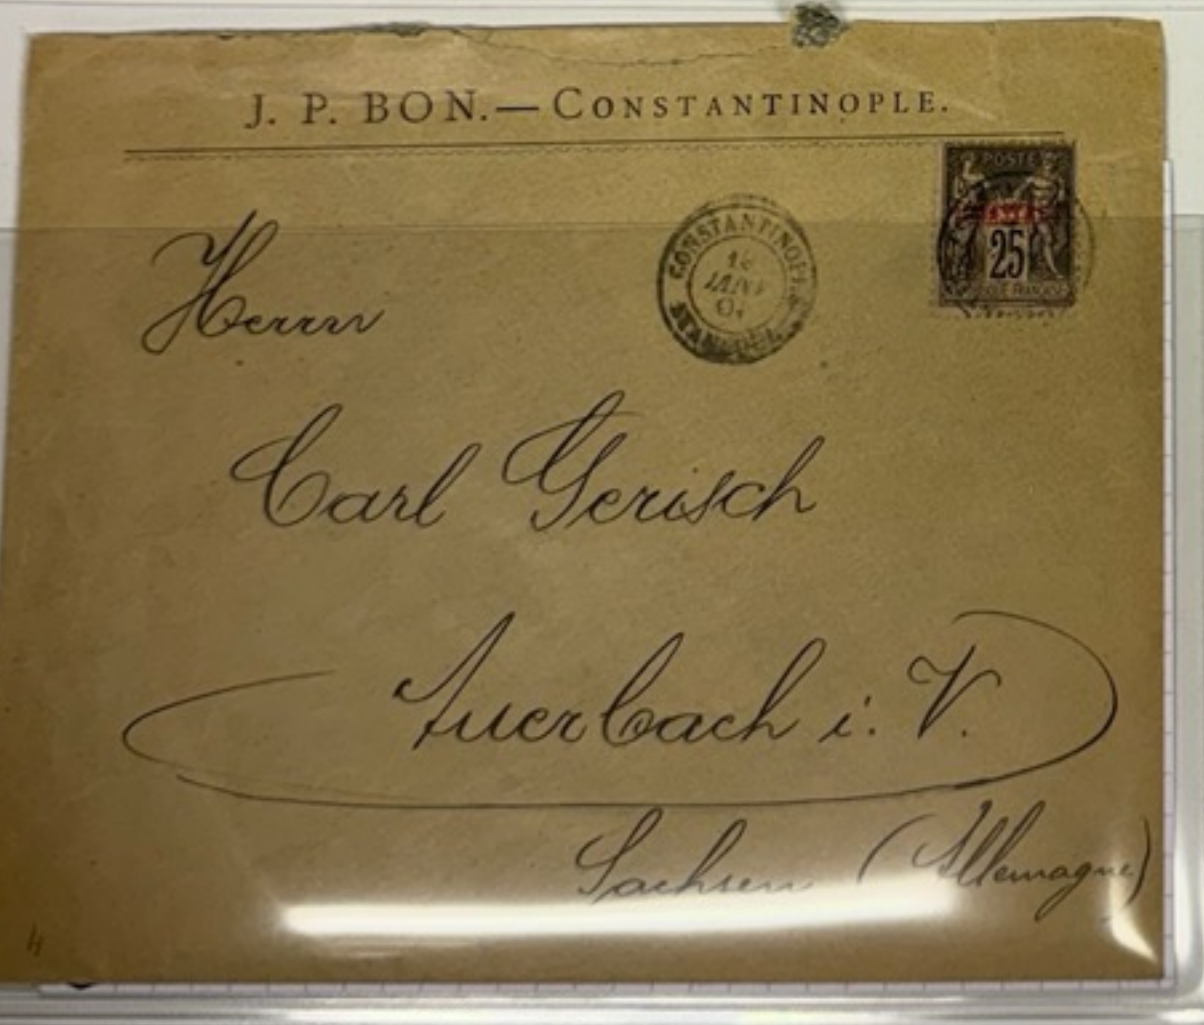 J. P. BON.— CONSTANTINOPLE.
POSTE
25
CONSTANTINOPLE
16
JANV
STAMBOUL
Herrn
Carl Gerisch
Auerbach i. V.
Sachsen (Allemagne)
4